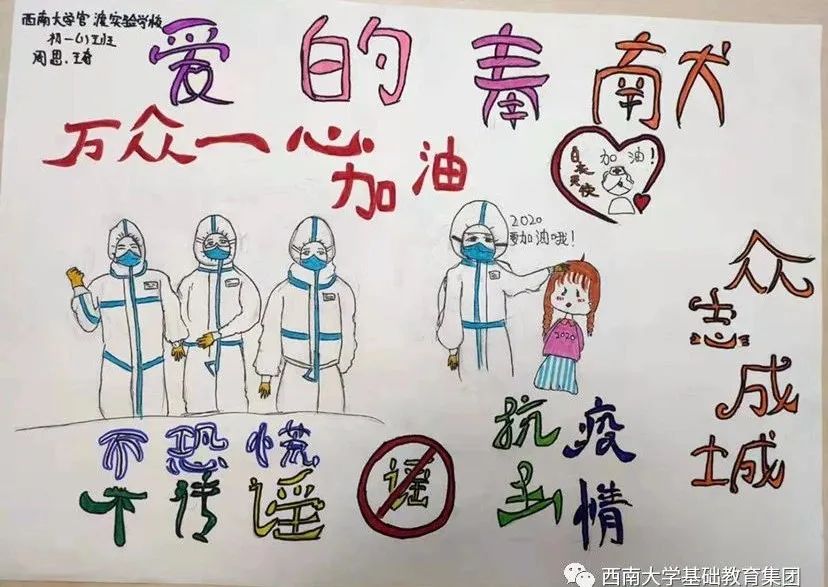 西南大学官渡实验学校
爱的奉献
万众一心
加油
白衣天使
加油!
2020
要加油哦!
2020
众志成城
不恐慌
不传谣
谣
抗击
疫情
西南大学基础教育集团